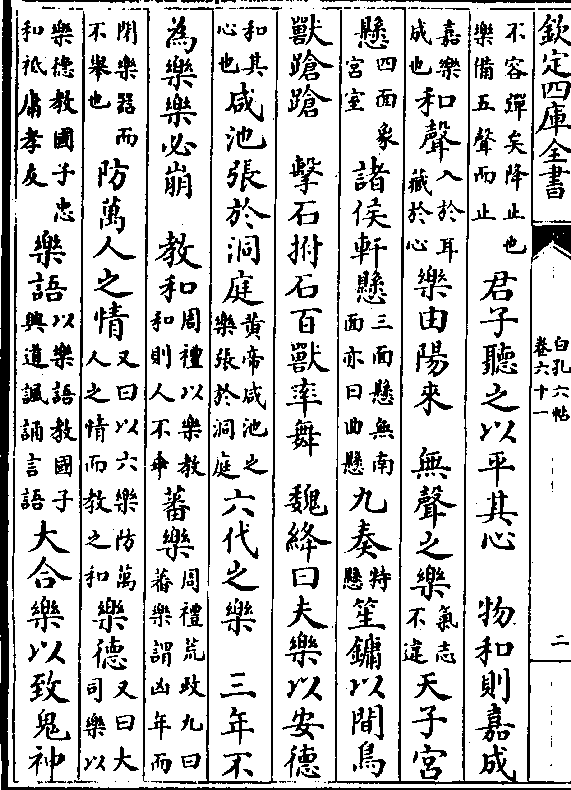 欽定四庫全書
白孔六帖
卷六十一
二
不容彈矣降止也樂備五聲而止君子聽之以平其心　物和則嘉成
嘉樂成也和聲入於耳藏於心樂由陽來　無聲之樂氣志不違天子宮
懸四面象宮室諸侯軒懸三面懸無南面亦曰曲懸九奏特懸笙鏞以間鳥
獸蹌蹌　擊石拊石百獸率舞　魏絳曰夫樂以安德
和其心也咸池張於洞庭黃帝咸池之樂張於洞庭六代之樂　三年不
為樂樂必崩　教和周禮以樂教和則人不乖蕃樂周禮荒政九曰蕃樂謂凶年而
閉樂器而不舉也防萬人之情又曰以六樂防萬人之情而教之和樂德又曰大司樂以
樂德教國子忠和祗庸孝友樂語以樂語教國子興道諷誦言語大合樂以致鬼神